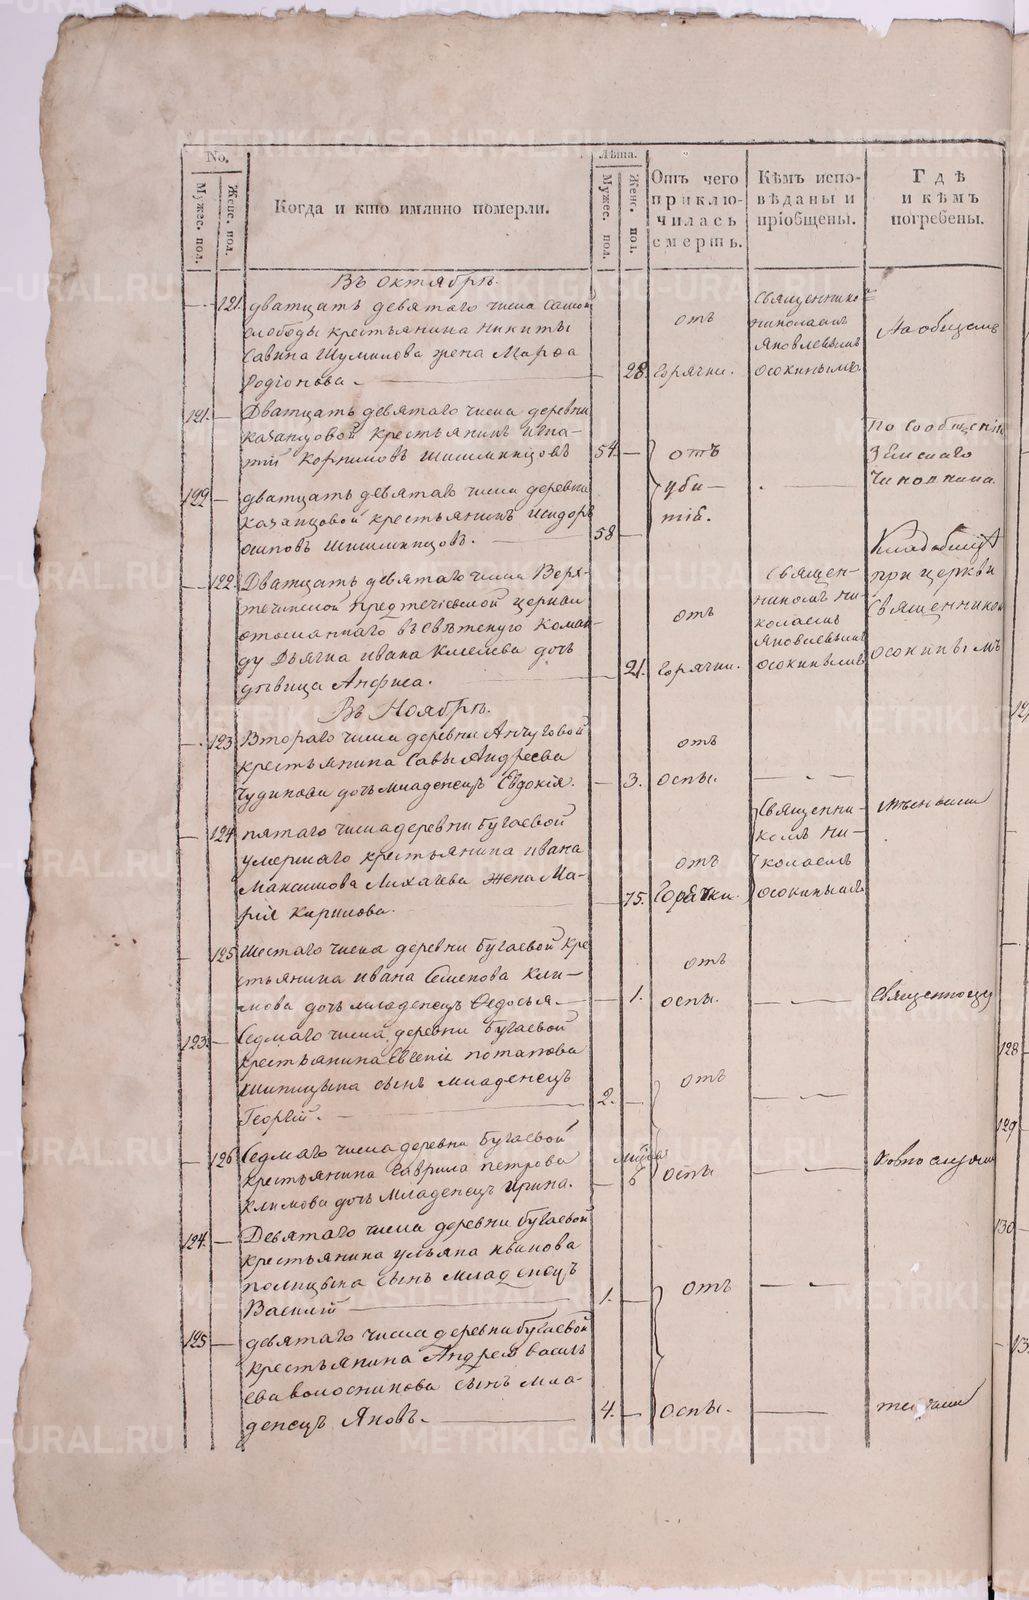 No.
Мужес. пол.
Женс. пол.
Когда и кто имянно померли.
Лѣта.
Мужес. пол.
Женс. пол.
Отъ чего приклю-
чилась
смерть.
Кѣмъ испо-
вѣданы и
пріобщены.
Гдѣ
и кѣмъ
погребены.
Въ октябрѣ.
121. дватцать девятаго числа самой
слободы крестьянина никиты
Савина Шумилова жена Марѳа
Родіонова.
28. отъ
горячки.
Священникомъ
николаемъ
Яковлевымъ
осокинымъ
На общемъ
121. Дватцать девятаго числа деревни
казанцовой крестьянинъ игна-
тій Корниловъ
54.
122 дватцать девятаго числа деревни
казанцовой крестьянинъ исидоръ
осиповъ
58
отъ
уби-
тій.
По сообщенію
Земскаго
Чиновника
122. Дватцать девятаго числа Верх-
теченской предтечіевской церкви
отосланнаго въ свѣтскую коман-
ду Дьячка ивана Киселева дочь
дѣвица Анфиса.
21. отъ
горячки.
Священ-
никомъ ни-
колаемъ
Яковлевымъ
осокинымъ
Кладбищѣ
при церкви
Священникомъ
осокинымъ
Въ Ноябрѣ.
123 Втораго числа деревни Анчуговой
крестьянина Савы Андреева
Чудинова дочь младенецъ Евдокія.
3. отъ
оспы.
124 пятаго числа деревни бугаевой
умершаго крестьянина ивана
Максимова Лихачева жена Ма-
рія Кирилова.
75. отъ
Горячки.
Священни-
комъ ни-
колаемъ
осокинымъ
125 Шестаго числа деревни бугаевой кре
стьянина ивана Семенова Кли-
мова дочь младенецъ Ѳедосья.
1. отъ
оспы.
Священноцер
123. Седмаго числа деревни бугаевой
крестьянина Евгеніе потапова
Шипицына сынъ младенецъ
Георгій.
2. отъ
126 Седмаго числа деревни бугаевой
крестьянина гаврила петрова
климова дочь младенецъ ирина.
6 оспы
124. Девятаго числа деревни бугаевой
крестьянина ульяна иванова
сынъ младенецъ
Василій
1. отъ
125 девятаго числа деревни бугаевой
крестьянина Андрея василь
ева волосникова сынъ мла-
денецъ Яковъ.
4. оспы.
128
129
130
METRIKI.GASO-URAL.RU